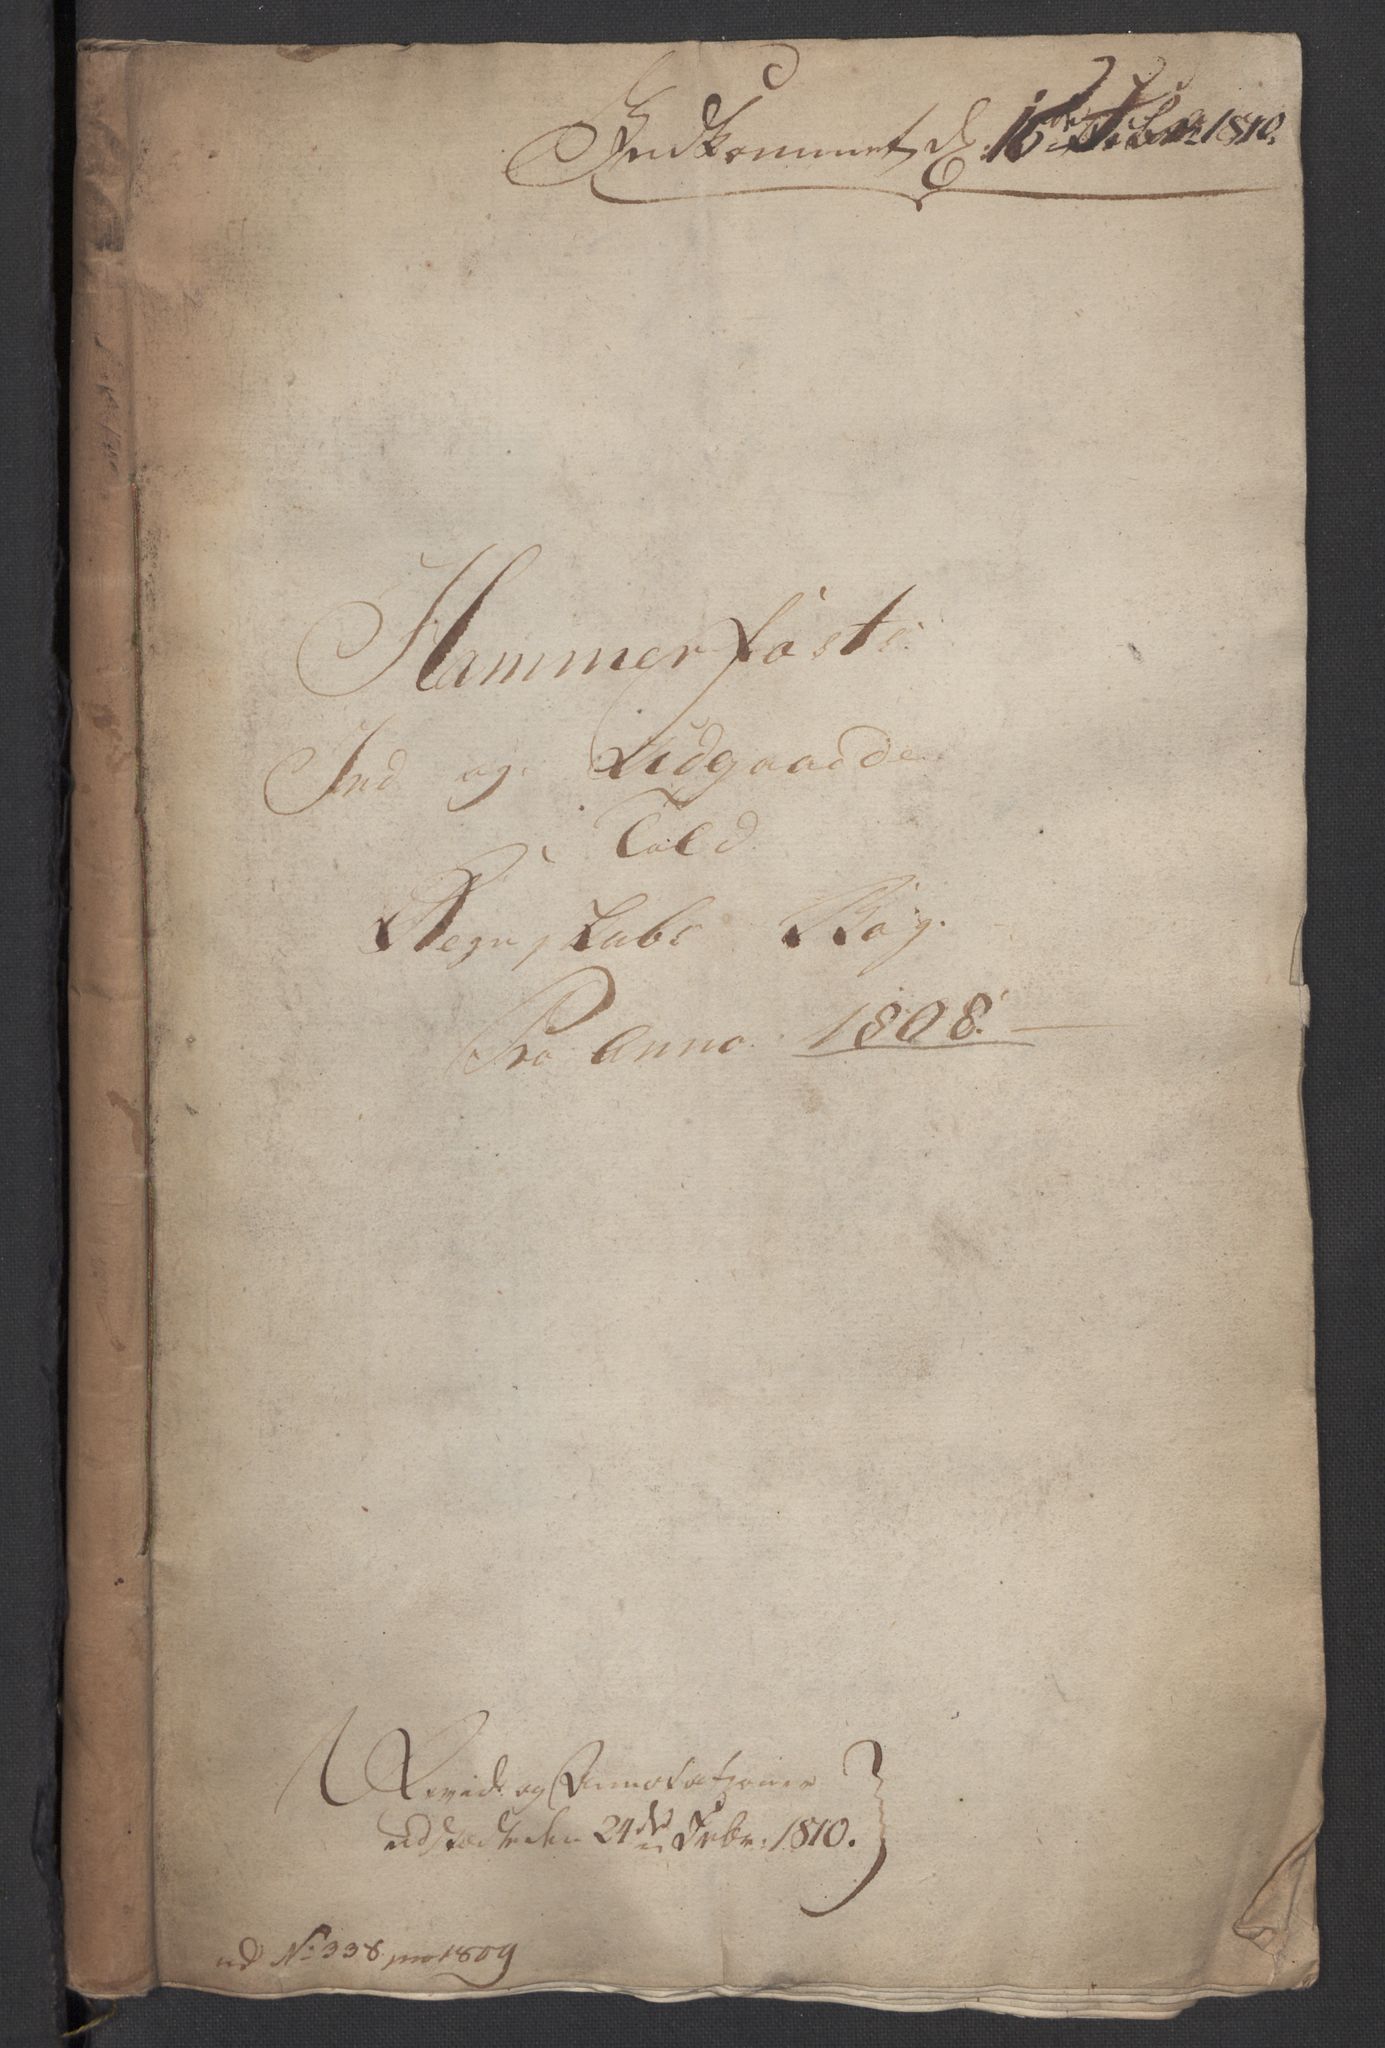 Indkommet d. 16de Febr. 1810.
Hammerfæsts
Ind og Udgaaende
Told
Regnskabs Bog.
Pro Anno 1808.
Revid. og Annotationer
udstædt den 24de Febr: 1810.
ad No 338 pro 1809